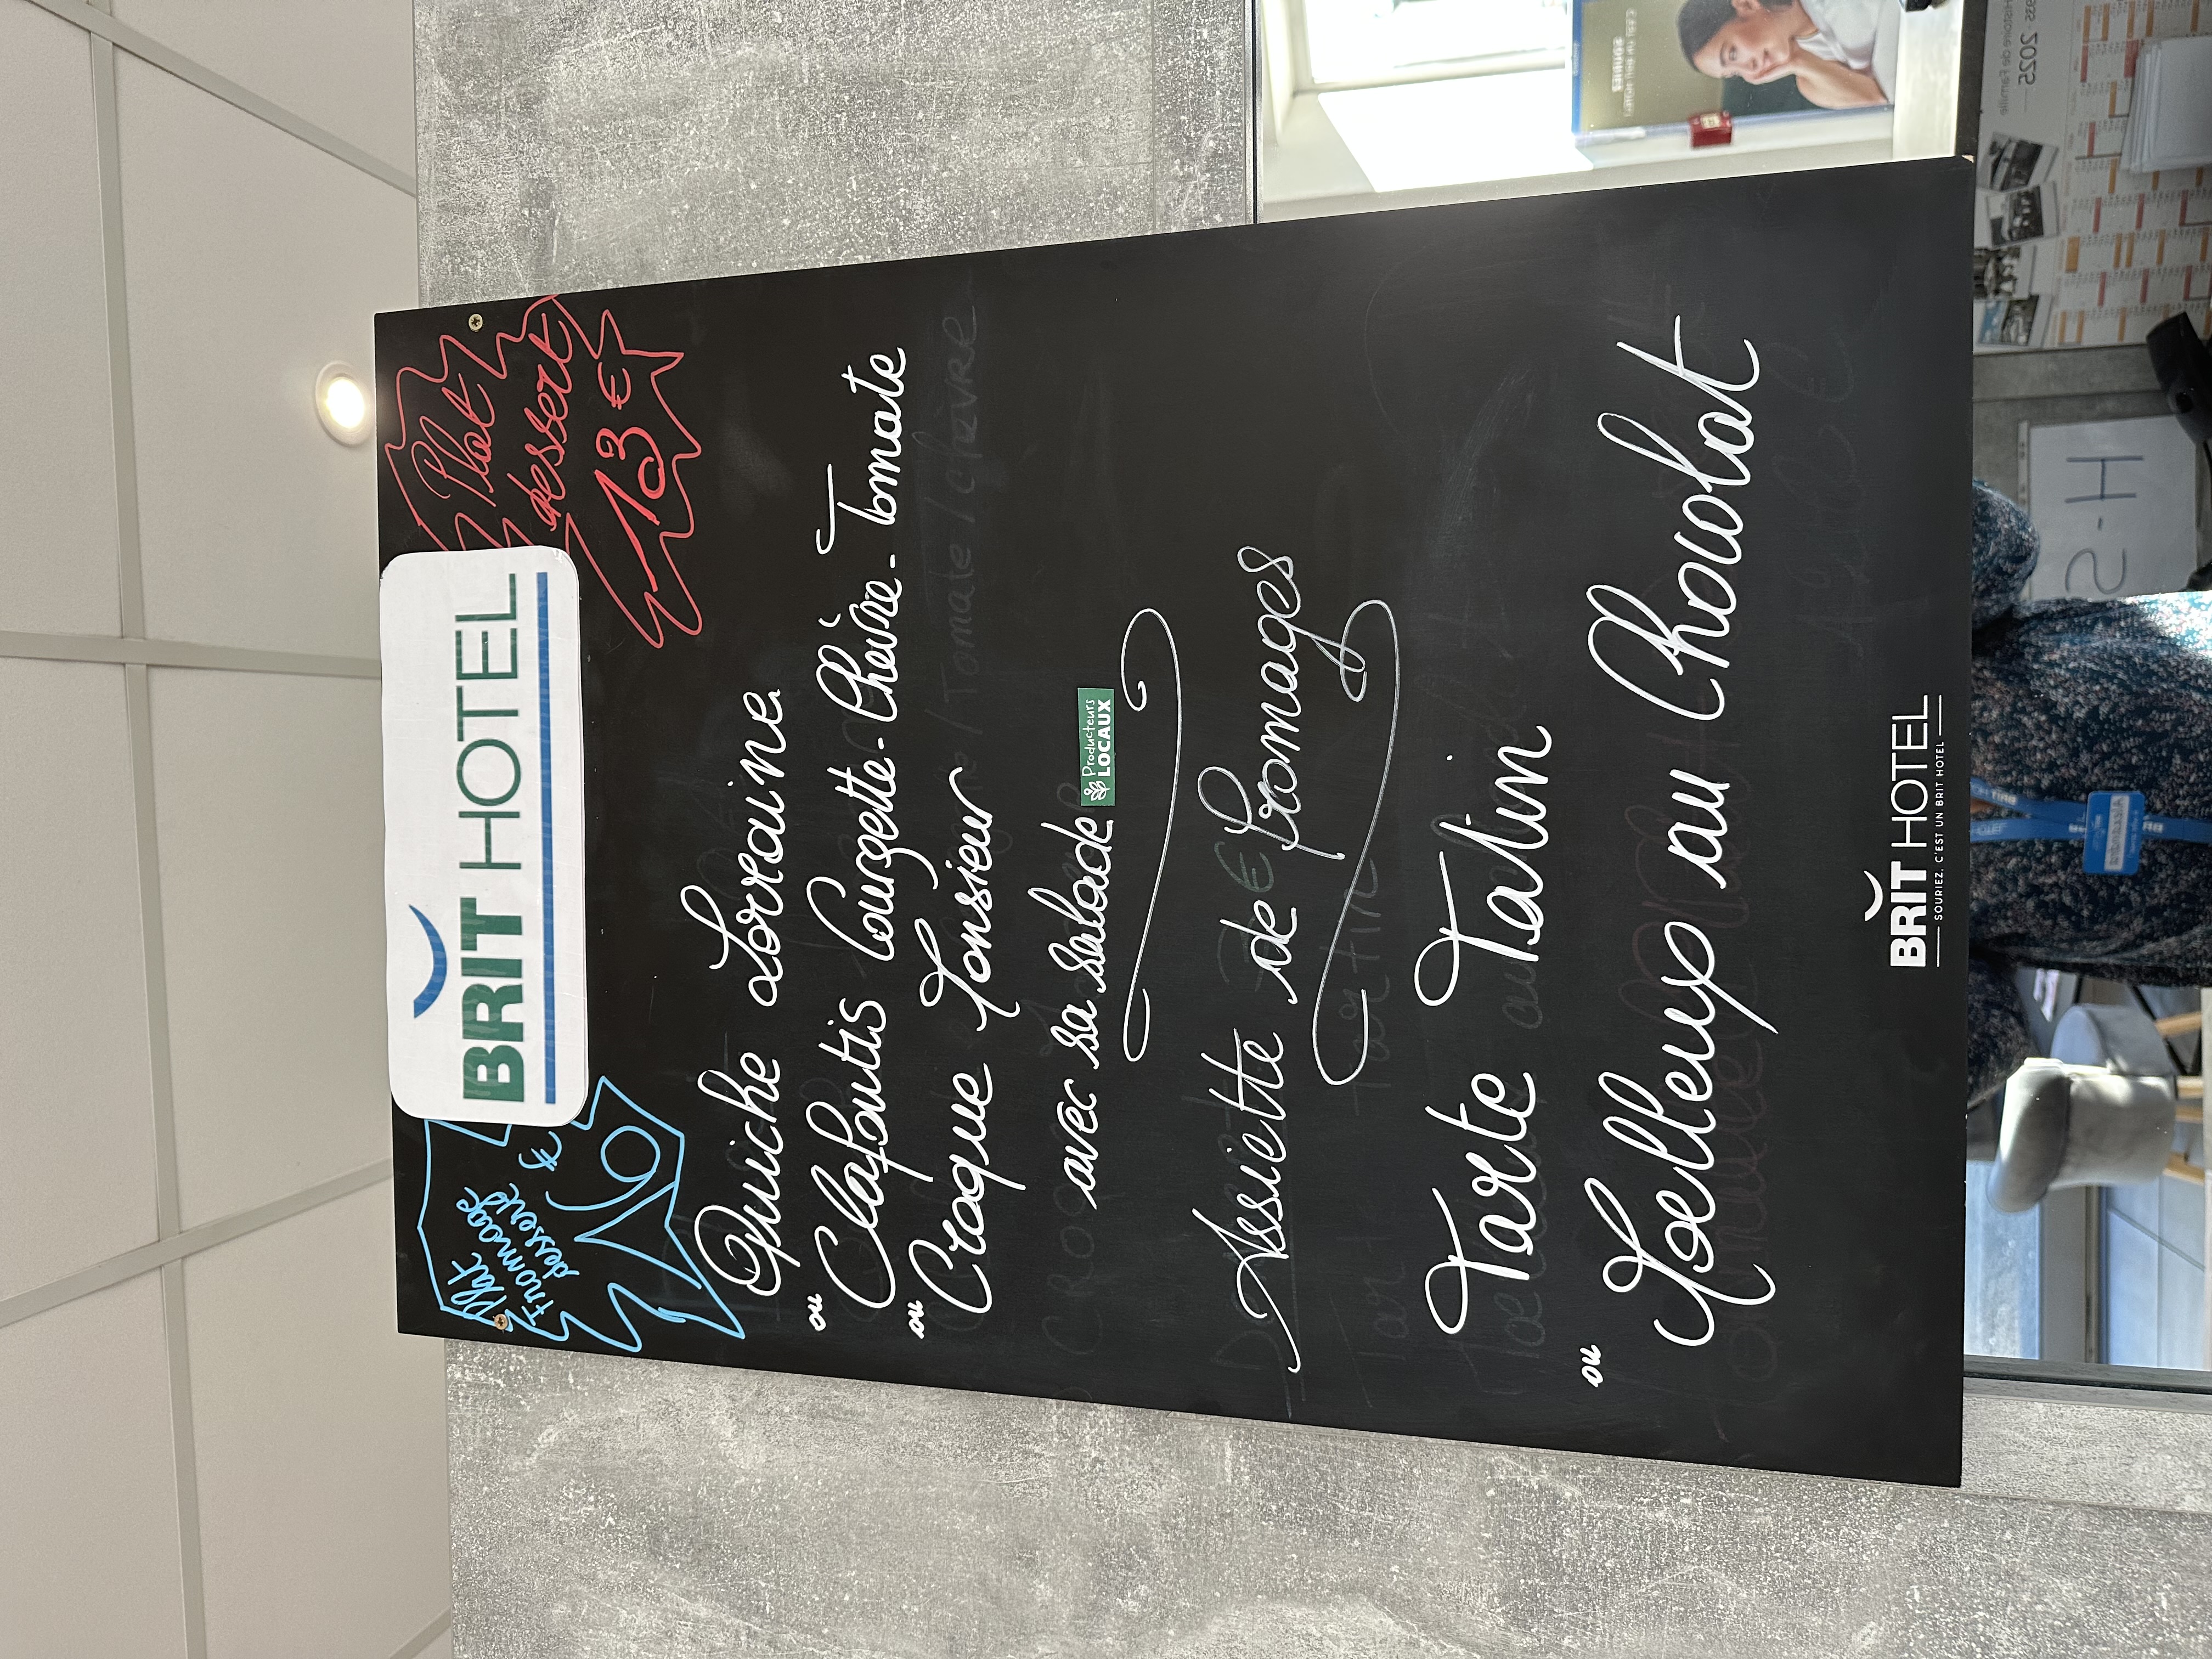 BRIT HOTEL
Plat
Fromage
dessert
16 €
Plat
dessert
13 €
Quiche Lorraine
ou
Clafoutis Courgette-Chèvre-Tomate
ou
Croque Monsieur
avec sa salade
Producteurs
LOCAUX
Assiette de fromages
Tarte Tatin
ou
Moelleux au Chocolat
BRIT HOTEL
SOURIEZ, C'EST UN BRIT HOTEL
2025